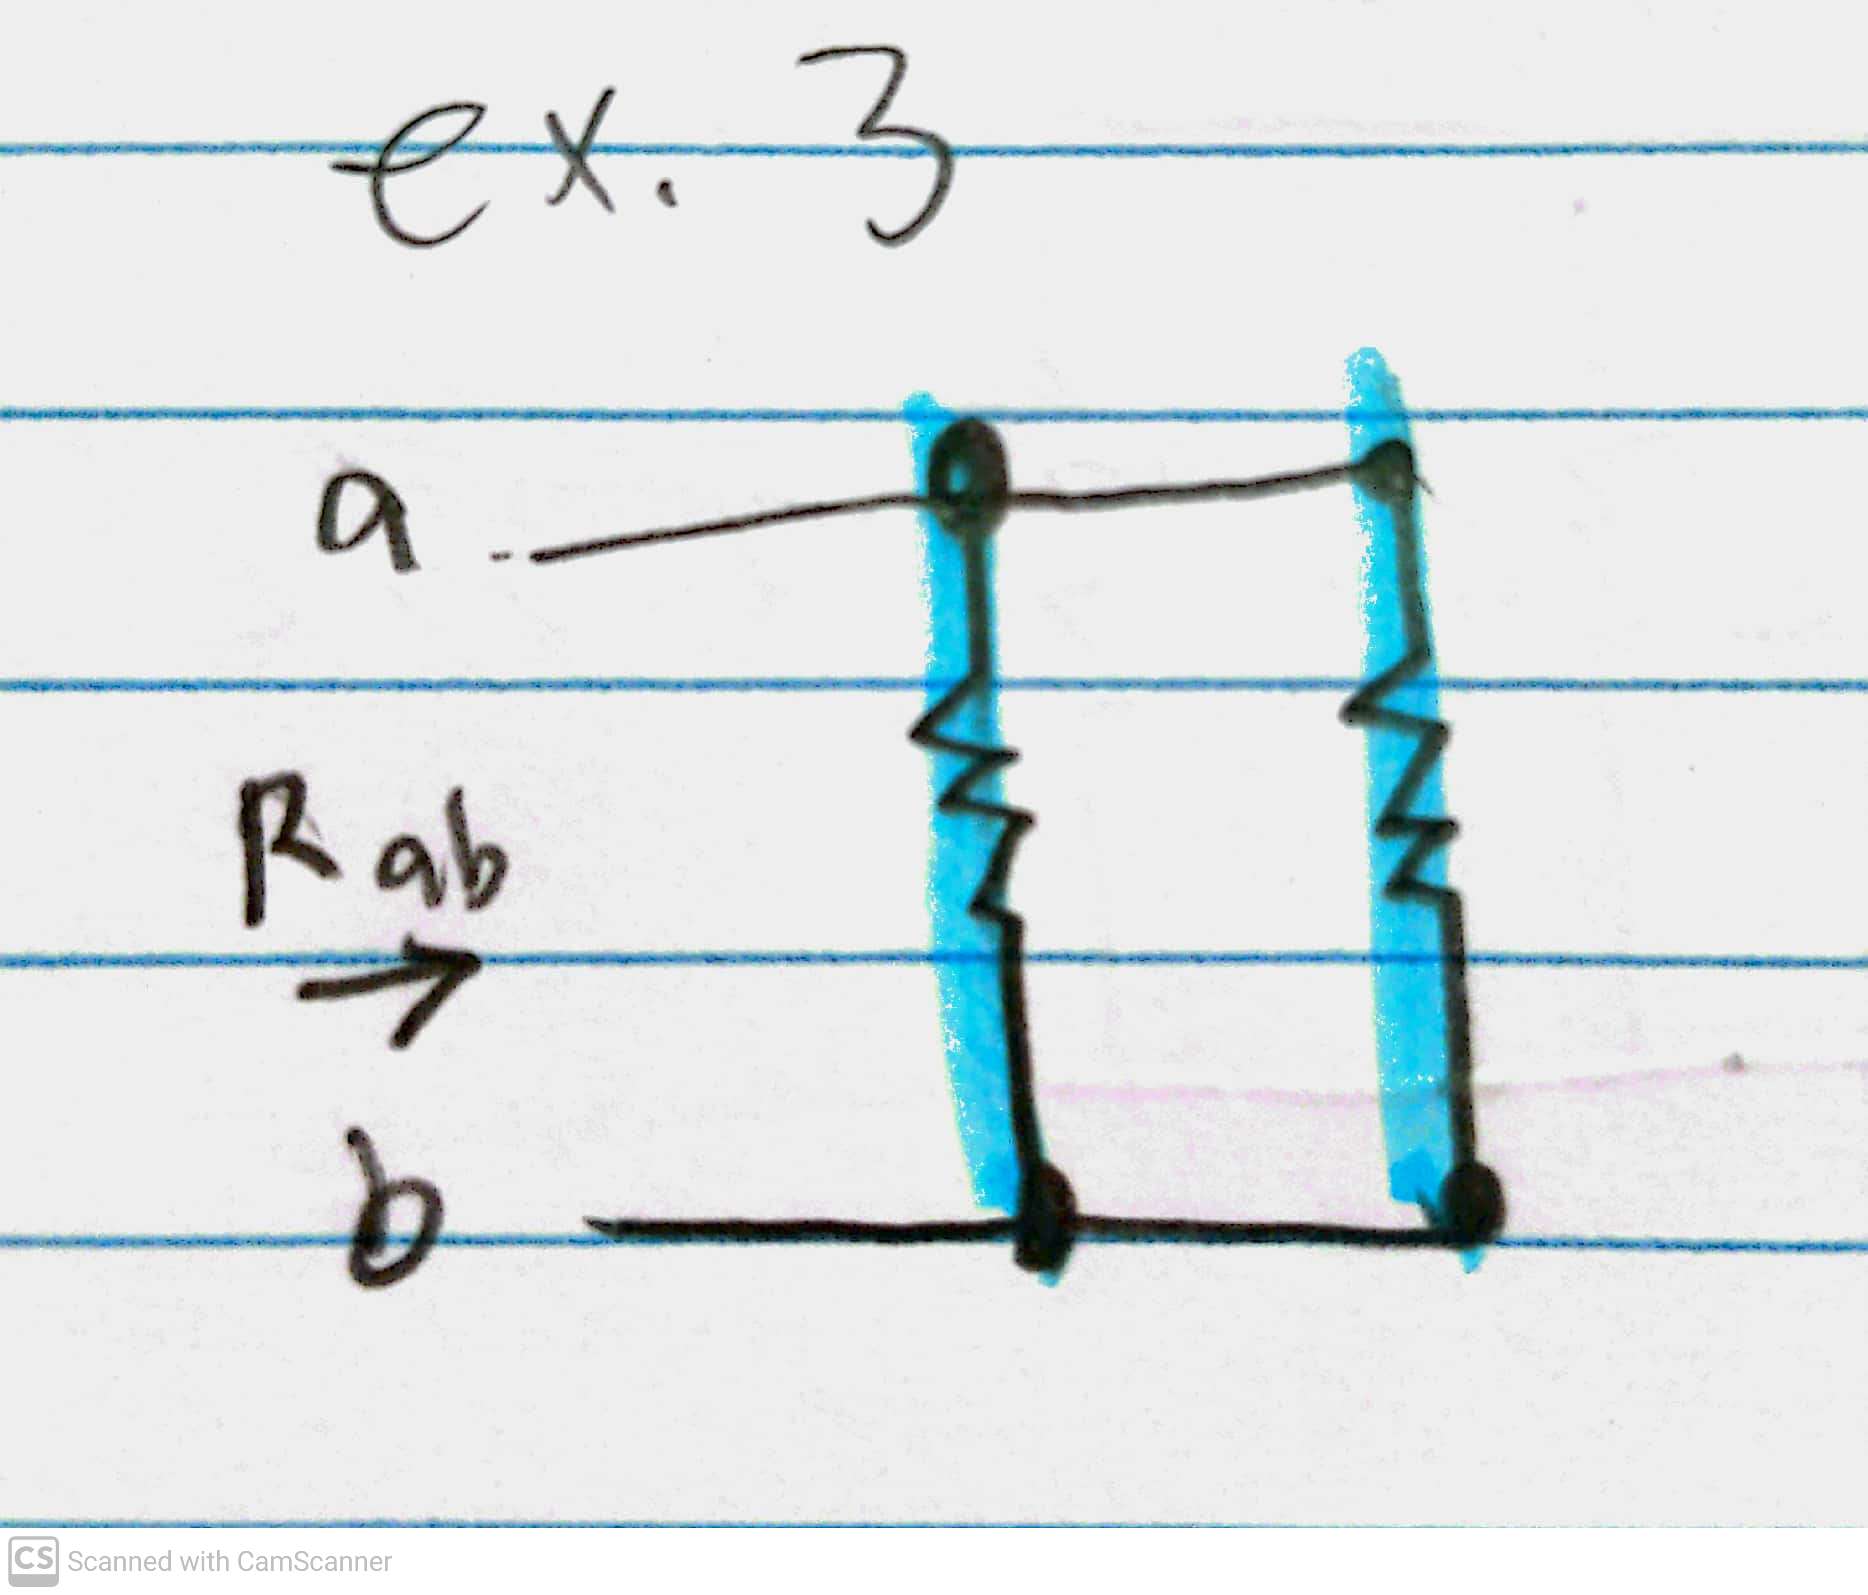 ex. 3
a
Rab
b
CS Scanned with CamScanner